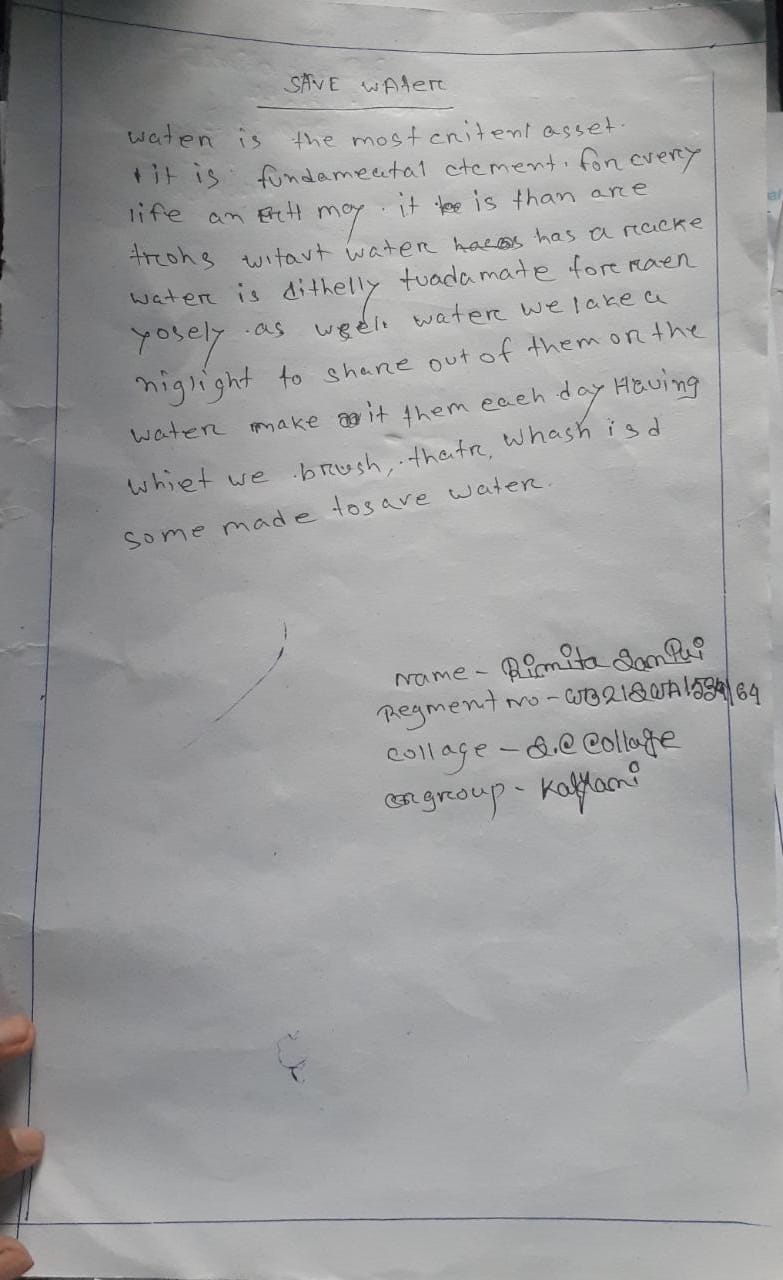 SAVE WATER
water is the most critent asset.
it is fundameental ctement. for every
life an Erth may. it is than are
trohs witavt water has a racke
water is dithelly tuadamate for raen
yosely .as well water we lake a
niglight to share out of them on the
water make it them each day Having
whiet we .brush, .thatr, whash is d
some made to save water.
Name -
Regment No - WB21SWA1539164
collage - S.C Collage
group - Kalyani